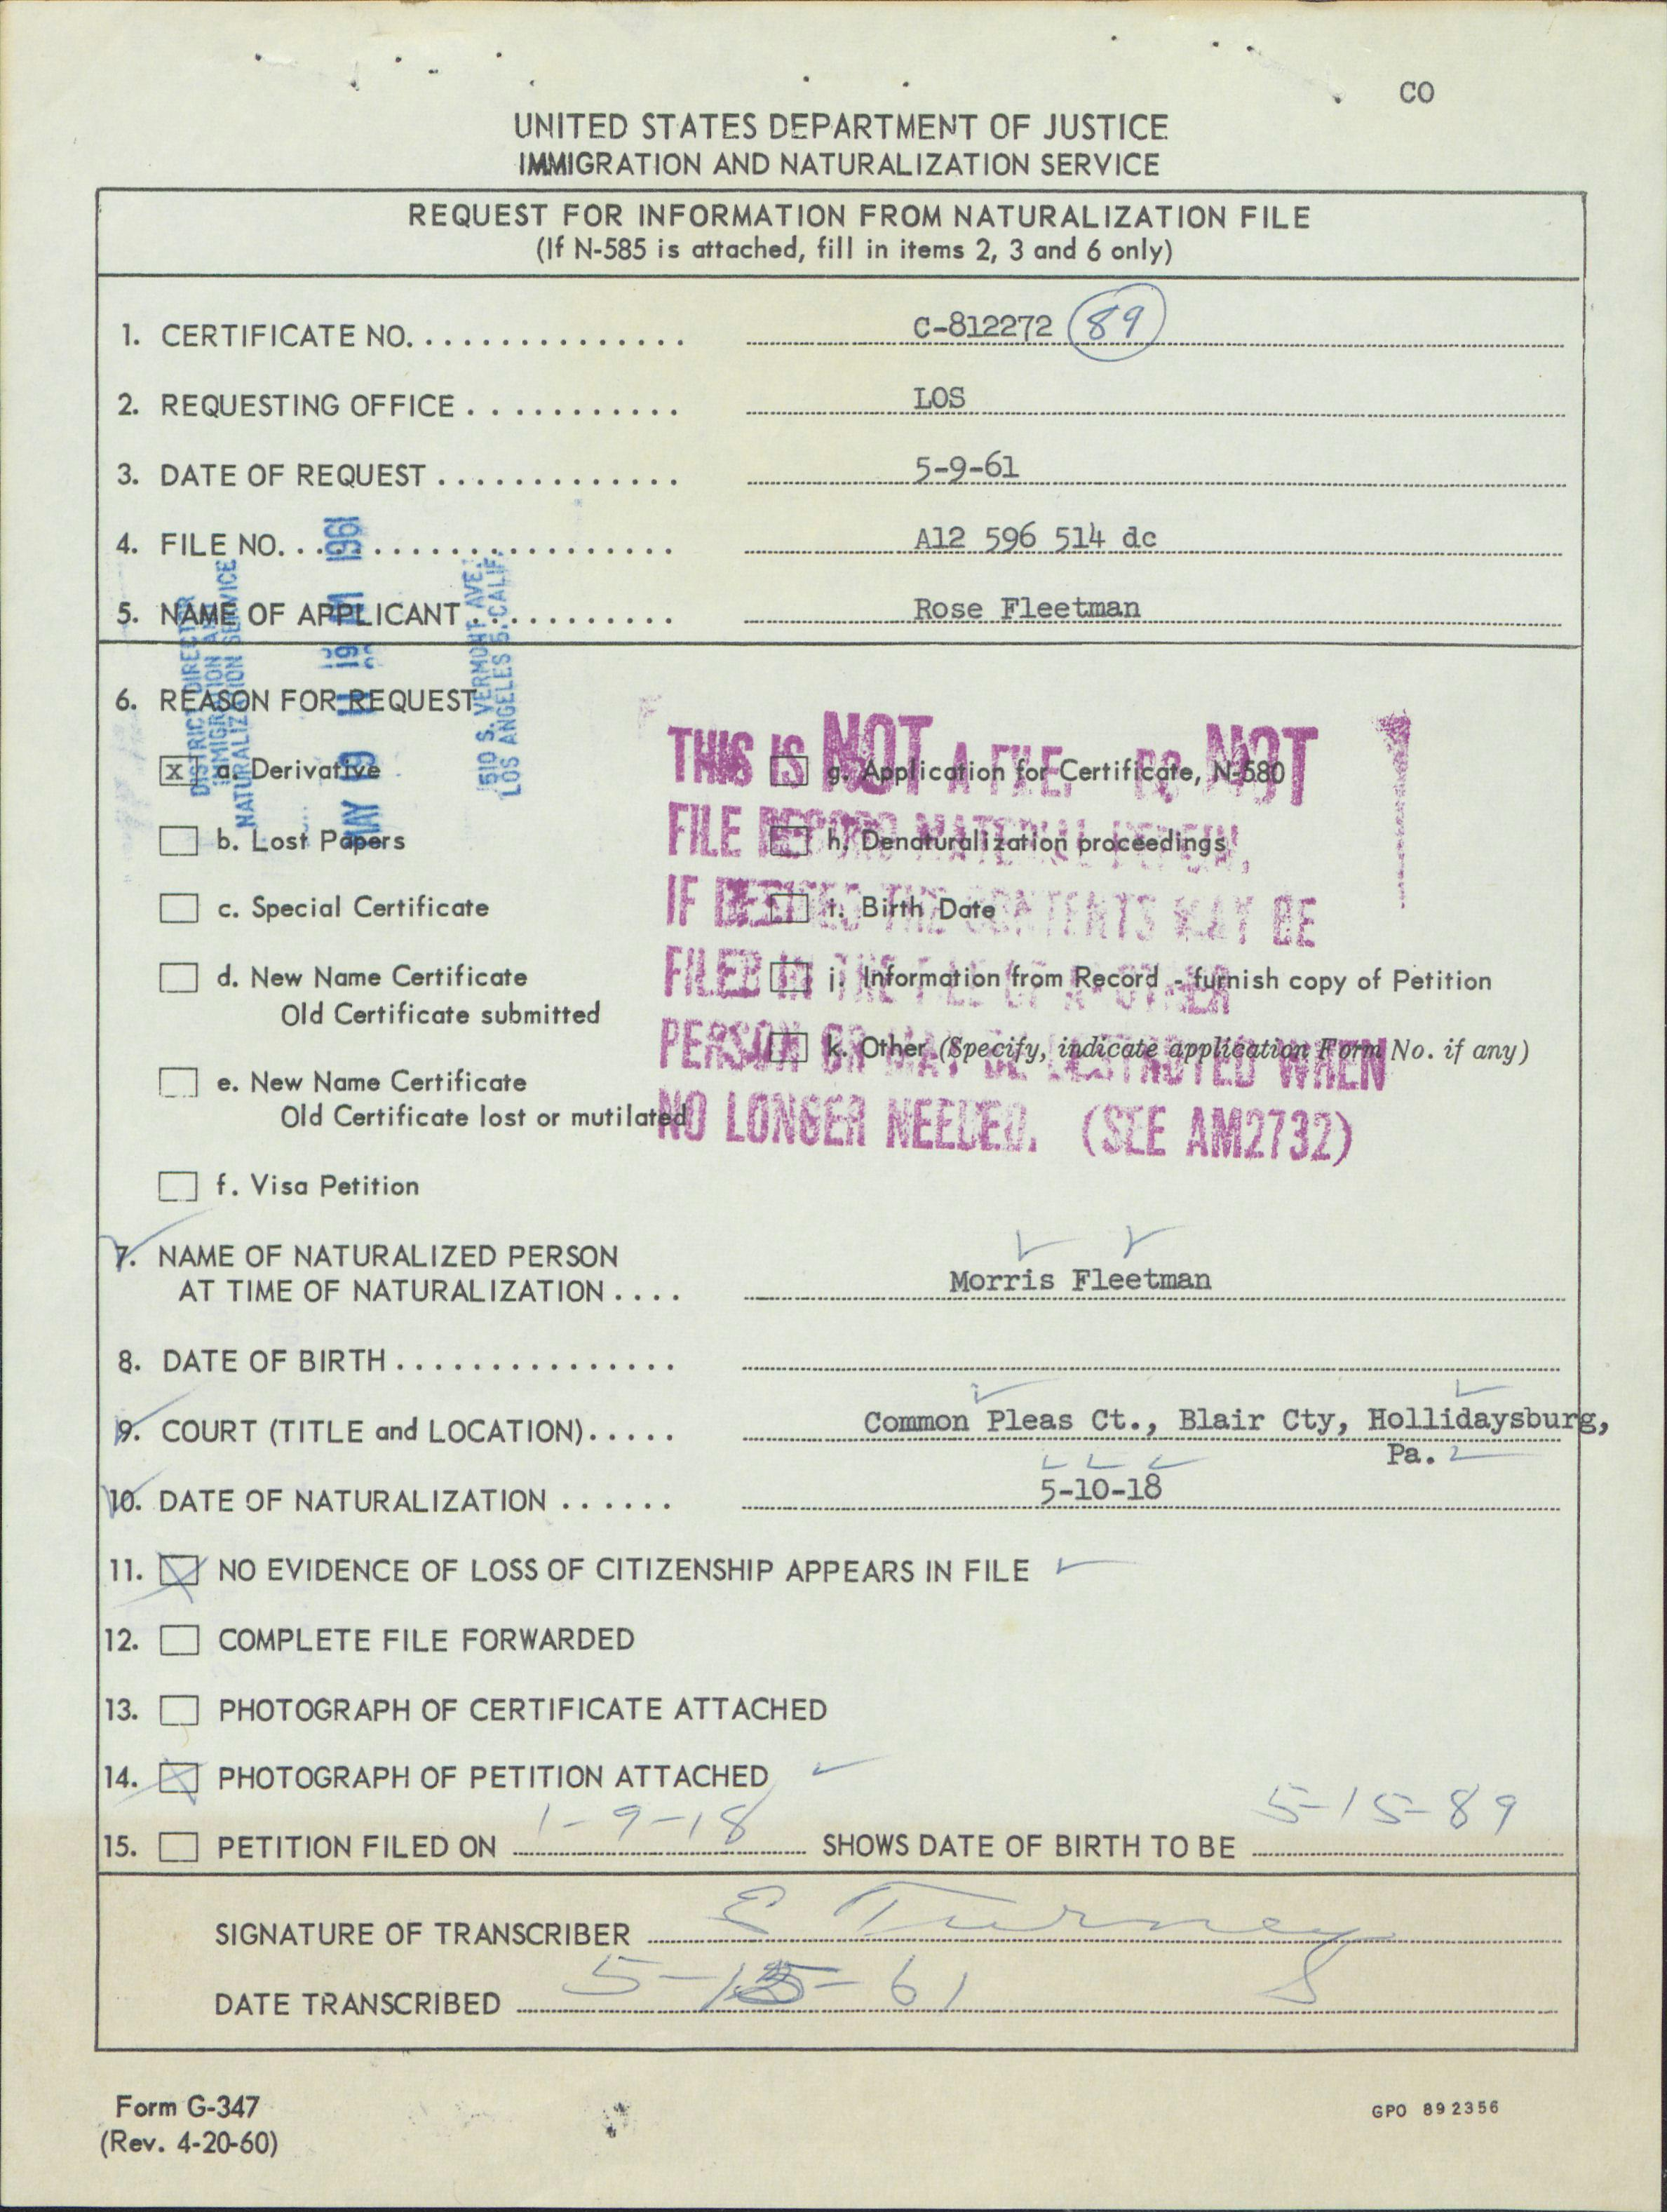 CO
UNITED STATES DEPARTMENT OF JUSTICE
IMMIGRATION AND NATURALIZATION SERVICE
REQUEST FOR INFORMATION FROM NATURALIZATION FILE
(If N-585 is attached, fill in items 2, 3 and 6 only)
1. CERTIFICATE NO. . . . . . . . . . . . . . . . C-812272 89
2. REQUESTING OFFICE . . . . . . . . . . . LOS
3. DATE OF REQUEST . . . . . . . . . . . . . 5-9-61
4. FILE NO. . . . . . . . . . . . . . . . . . . . . A12 596 514 dc
5. NAME OF APPLICANT . . . . . . . . . . . Rose Fleetman
DISTRICT DIRECTOR
IMMIGRATION AND
NATURALIZATION SERVICE
MAY 9 1961
1510 S. VERMONT AVE.
LOS ANGELES 5, CALIF.
6. REASON FOR REQUEST
x a. Derivative
b. Lost Papers
c. Special Certificate
d. New Name Certificate
Old Certificate submitted
e. New Name Certificate
Old Certificate lost or mutilated
f. Visa Petition
g. Application for Certificate, N-580
h. Denaturalization proceedings
i. Birth Date
j. Information from Record - furnish copy of Petition
k. Other (Specify, indicate application Form No. if any)
THIS IS NOT A FILE. DO NOT
FILE RECORD MATERIAL HEREIN,
IF DESIRED THE CONTENTS MAY BE
FILED IN THE FILE OF ANOTHER
PERSON OR MAY BE DESTROYED WHEN
NO LONGER NEEDED. (SEE AM2732)
7. NAME OF NATURALIZED PERSON
AT TIME OF NATURALIZATION . . . . Morris Fleetman
8. DATE OF BIRTH . . . . . . . . . . . . . . .
9. COURT (TITLE and LOCATION) . . . . . Common Pleas Ct., Blair Cty, Hollidaysburg,
Pa.
10. DATE OF NATURALIZATION . . . . . . 5-10-18
11. NO EVIDENCE OF LOSS OF CITIZENSHIP APPEARS IN FILE
12. COMPLETE FILE FORWARDED
13. PHOTOGRAPH OF CERTIFICATE ATTACHED
14. PHOTOGRAPH OF PETITION ATTACHED
15. PETITION FILED ON 1-9-18 SHOWS DATE OF BIRTH TO BE 5-15-89
SIGNATURE OF TRANSCRIBER E Turney
DATE TRANSCRIBED 5-15-61
Form G-347
(Rev. 4-20-60)
GPO 892356